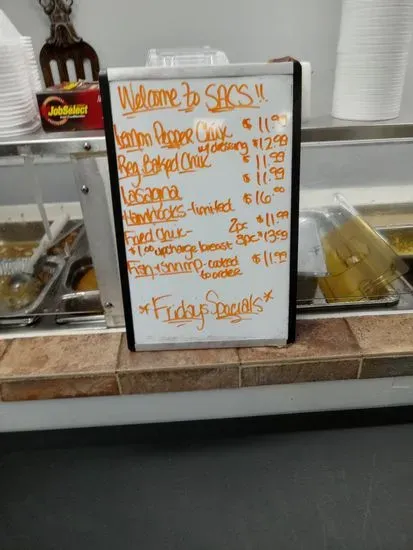 JobSelect
Welcome to SACS!!
Lemon Pepper Chik $11.99
w/dressing $12.99
Reg. Baked Chik $11.99
$11.99
Lasagna $16.00
Hamhocks - limited
Fried Chik - 2pc $11.99
$1.00 upcharge breast 3pc $13.99
Fish & shrimp - cooked $11.99
to order
*Fridays Specials*